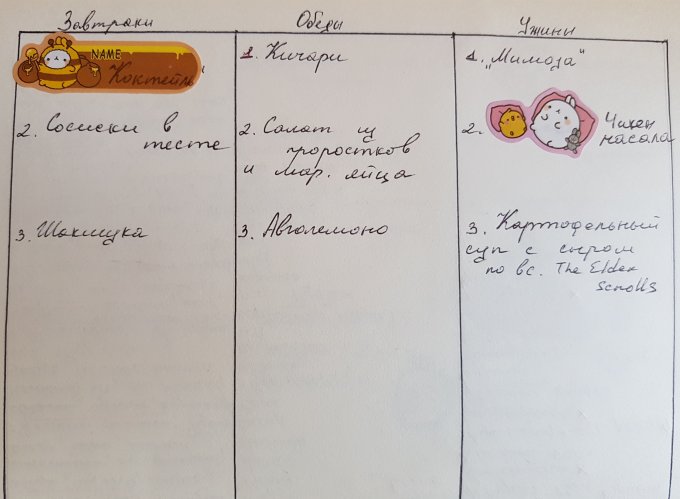 Завтраки
Обеды
Ужины
NAME
Коктейль"
2. Сосиски в
тесте
3. Шакшука
1. Кичари
2. Салат из
проростков
и мар. яйца
3. Авголемоно
1. „Мимоза"
2. Чикен
масала
3. Картофельный
суп с сыром
по вс. The Elder
Scrolls